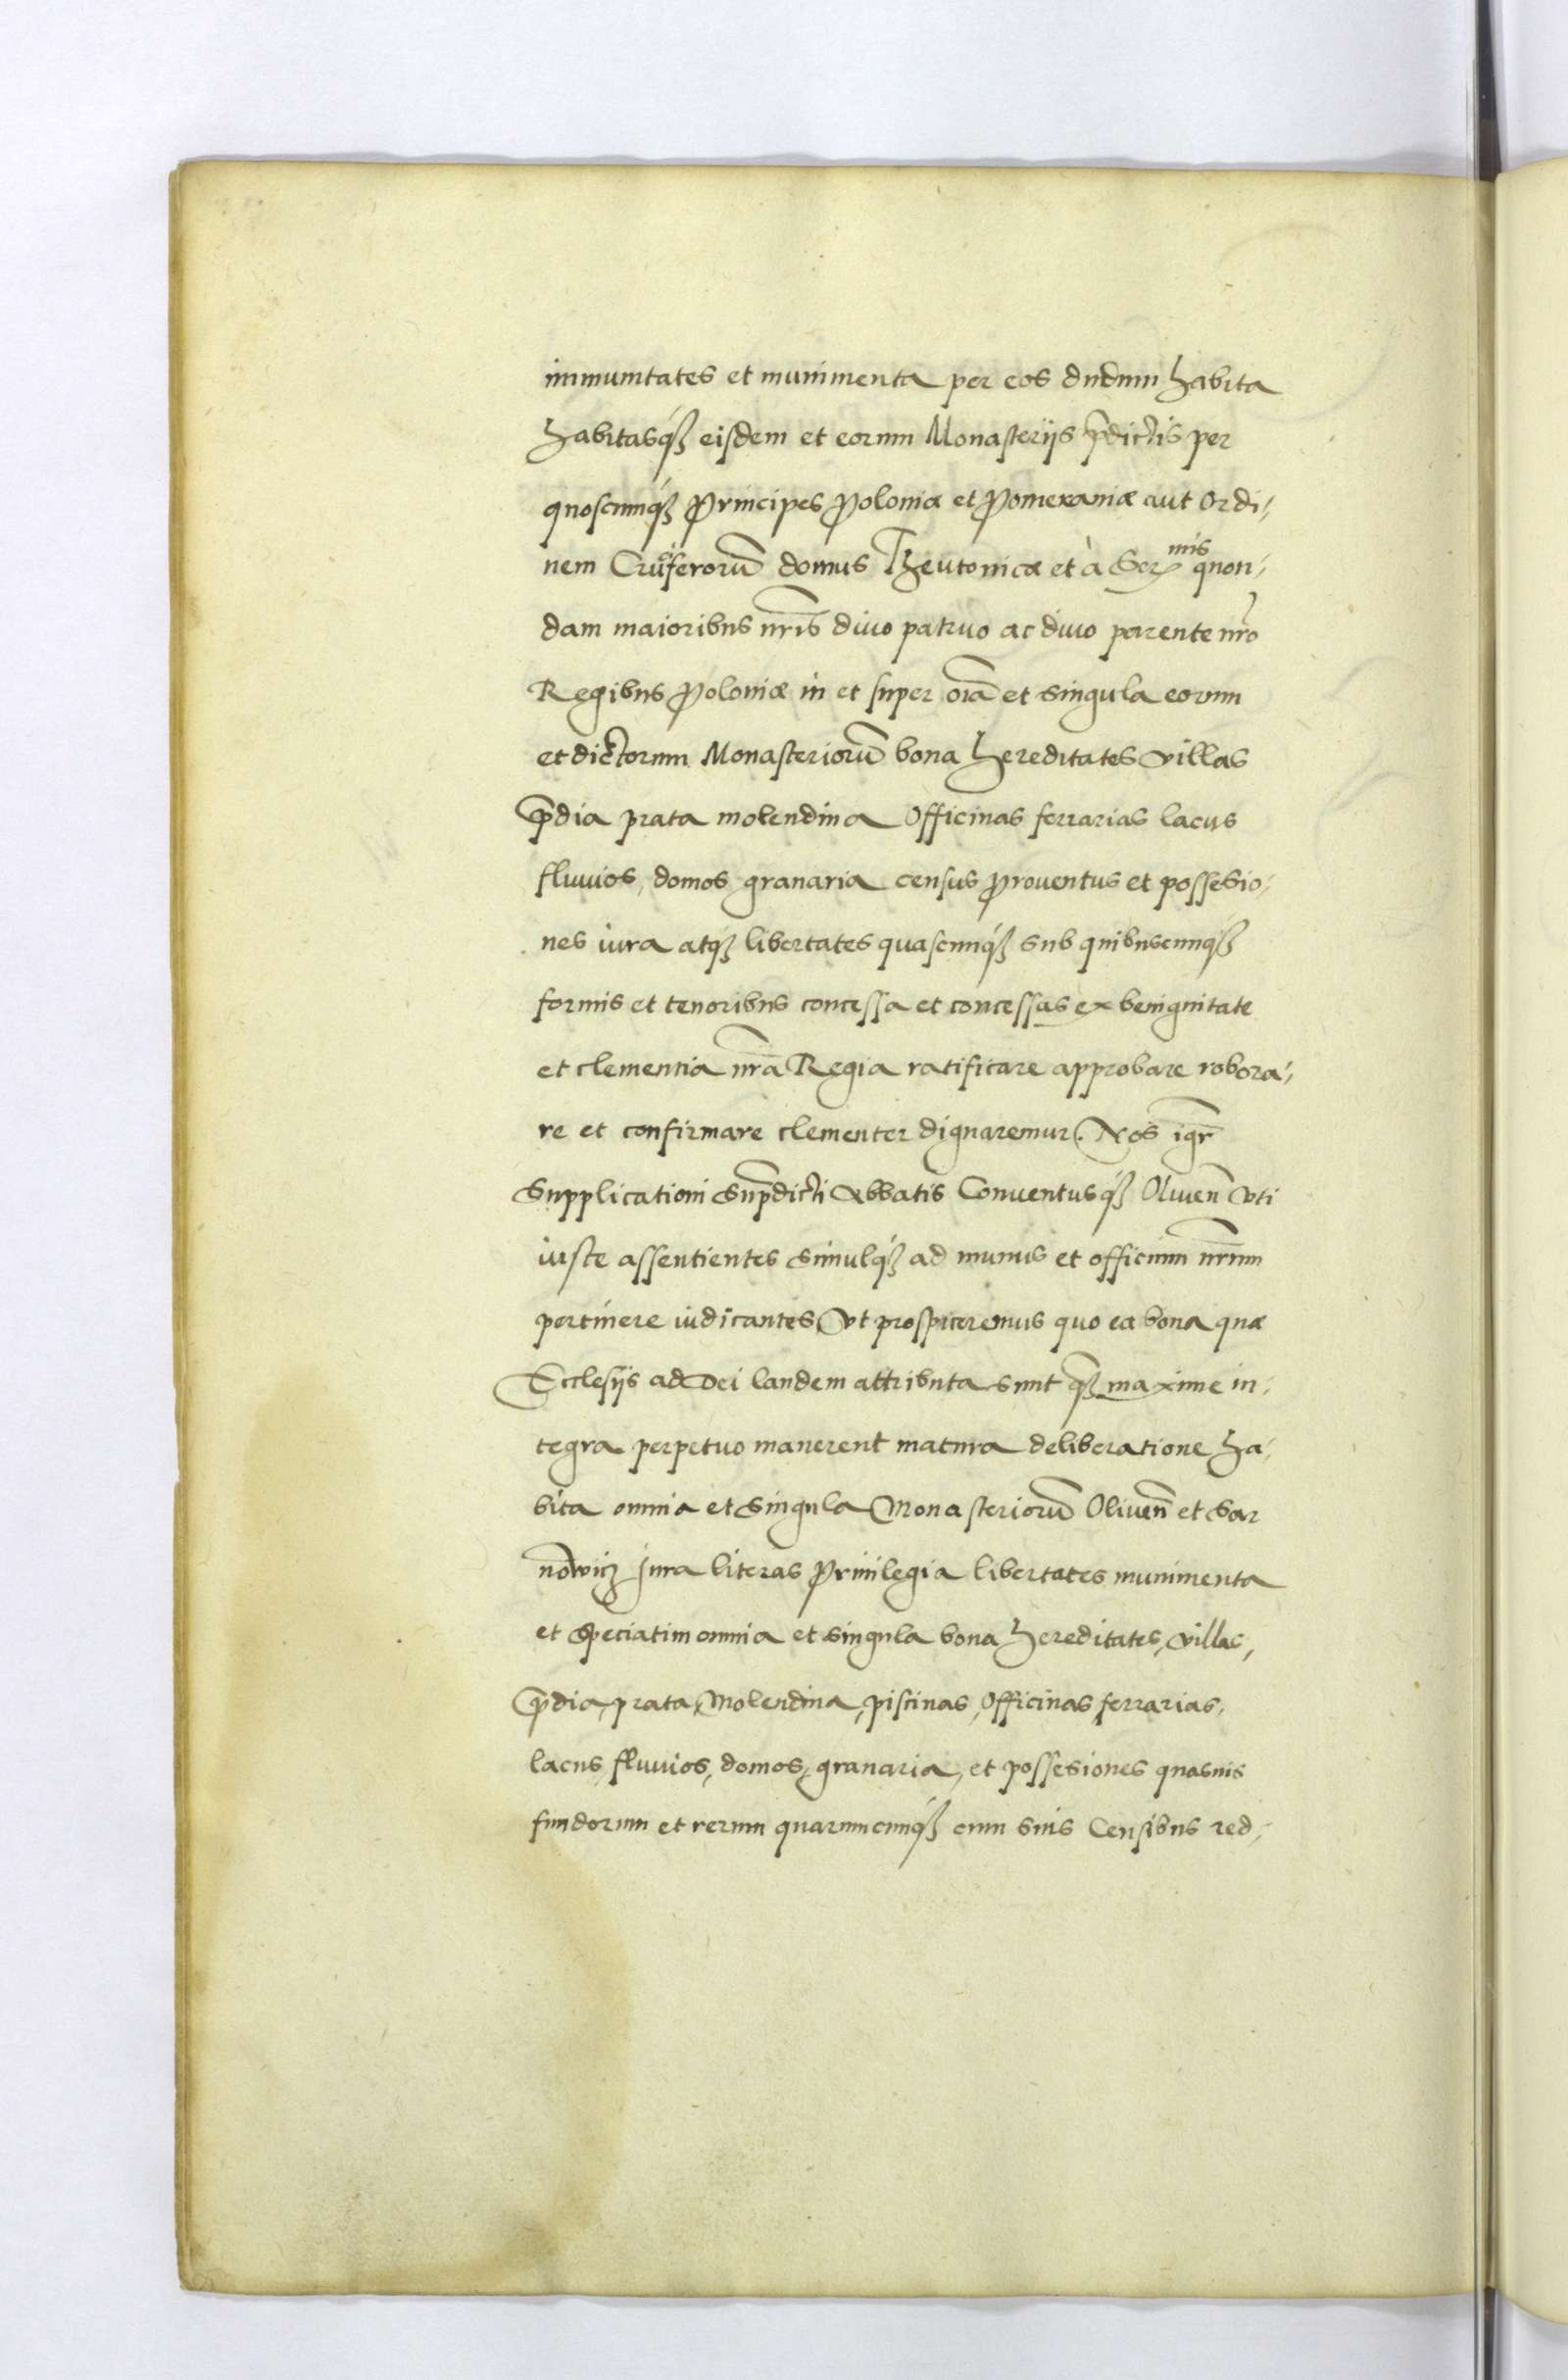 immunitates et munimenta per eos dudum habita
habitasqꝫ eisdem et eorum Monasterijs p̄dictis per
quoscunqꝫ Principes Poloniæ et Pomeraniæ aut Ordi-
nem Cruciferorū domus Theutonicæ et à Ser^mis quon-
dam maioribus nr̄is diuo patruo ac diuo parente nr̄o
Regibus Poloniæ in et super oīa et singula eorum
et dictorum Monasteriorū bona hereditates villas
p̄dia prata molendina Officinas ferrarias lacus
fluuios, domos granaria census prouentus et possesio-
nes iura atqꝫ libertates quascunqꝫ sub quibuscunqꝫ
formis et tenoribus concessa et concessas ex benignitate
et clementia nr̄a Regia ratificare approbare robora-
re et confirmare clementer dignaremur. Nos igr̄
Supplicationi Sup̄dicti Abbatis Conuentusqꝫ Oliuen̄ vti
iuste assentientes simulqꝫ ad munus et officium nr̄um
pertinere iudicantes vt prospiceremus quo ea bona quæ
Ecclesijs ad Dei laudem attributa sunt qꝫ maxime in-
tegra perpetuo manerent matura deliberatione ha-
bita omnia et singula Monasteriorū Oliuen̄ et Sar
nowicz Iura literas Priuilegia libertates munimenta
et speciatim omnia et singula bona hereditates, villas,
p̄dia, prata, Molendina, piscinas, Officinas ferrarias,
lacus, fluuios, domos, granaria, et possesiones quasuis
fundorum et rerum quarumcunqꝫ cum suis Censibus red-